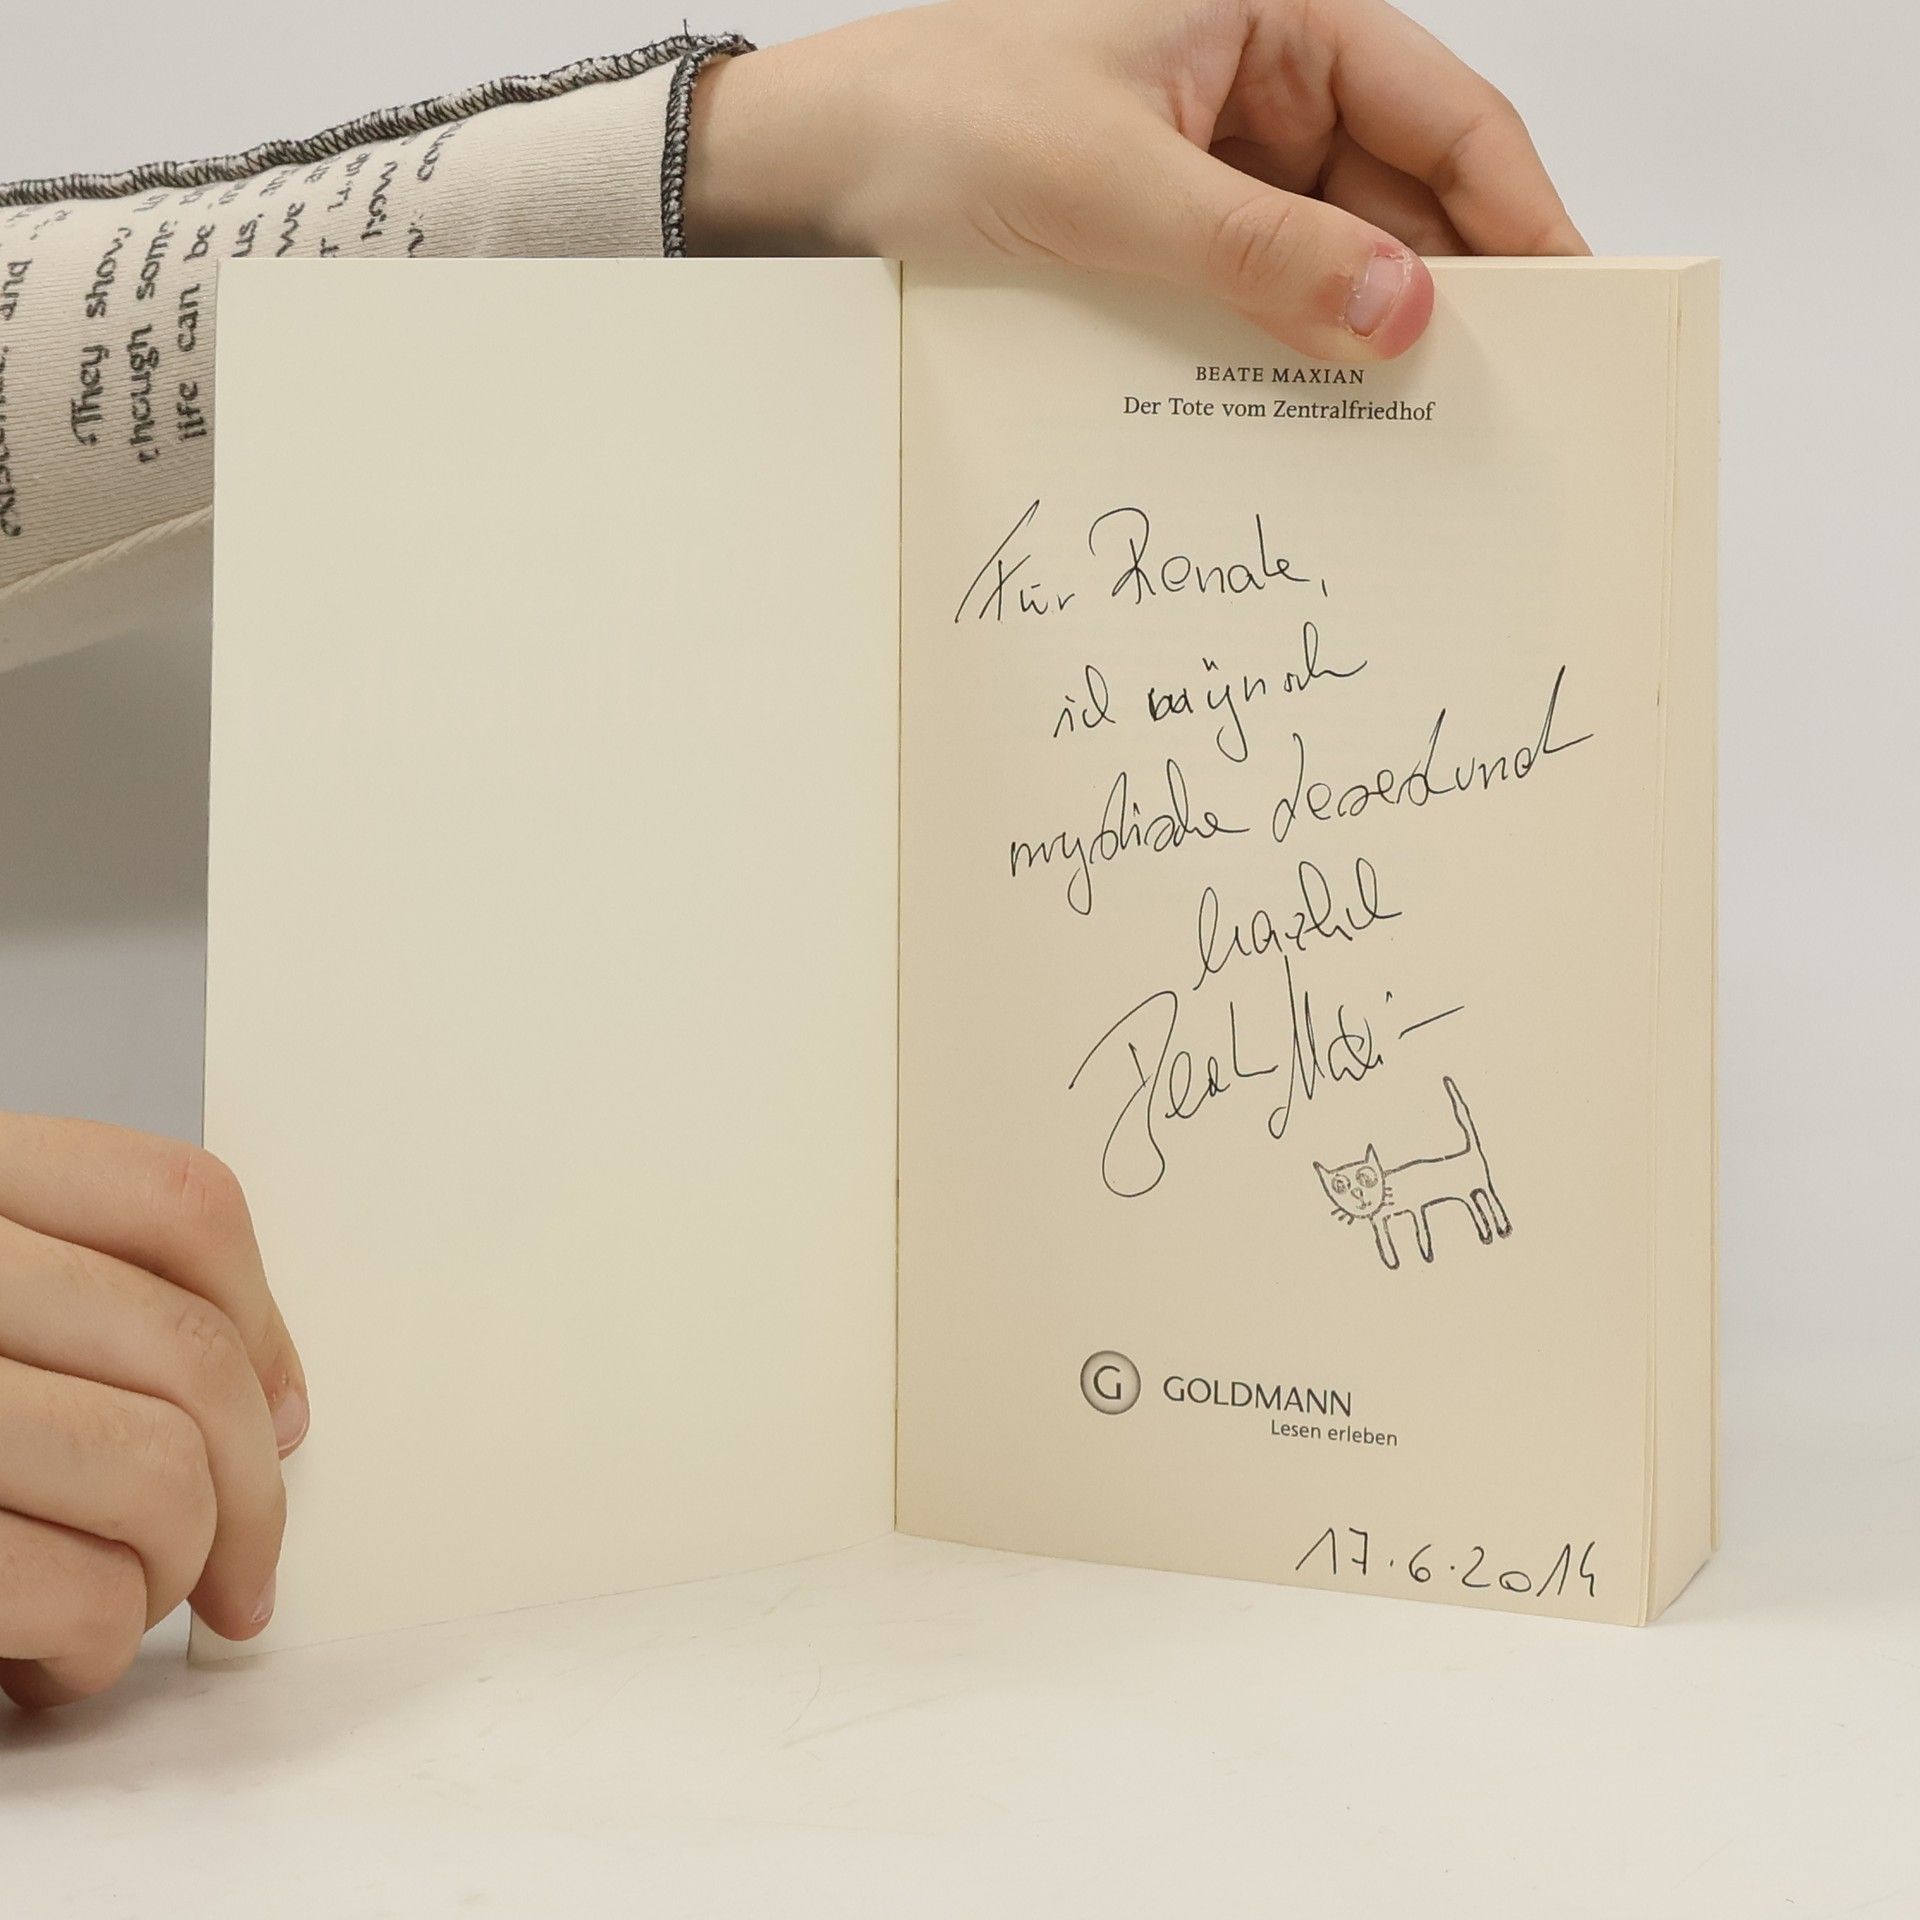 They show
though some
life can be
us, an
we an
how
BEATE MAXIAN
Der Tote vom Zentralfriedhof
Für Renate,
ich wünsch
mystische Lesestund
herzlich
Beate Maxian
G GOLDMANN
Lesen erleben
17.6.2014